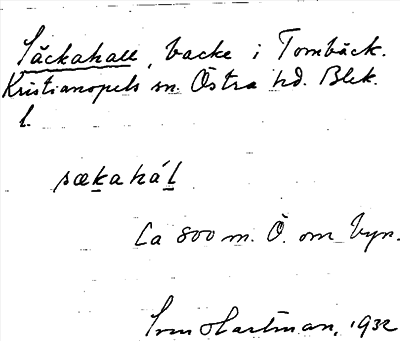 Säckahall, backe i Tombäck.
Kristianopels sn. Östra hd. Blek.
l.
sækahál
Ca 800 m. Ö. om byn.
Sven Hartman, 1932